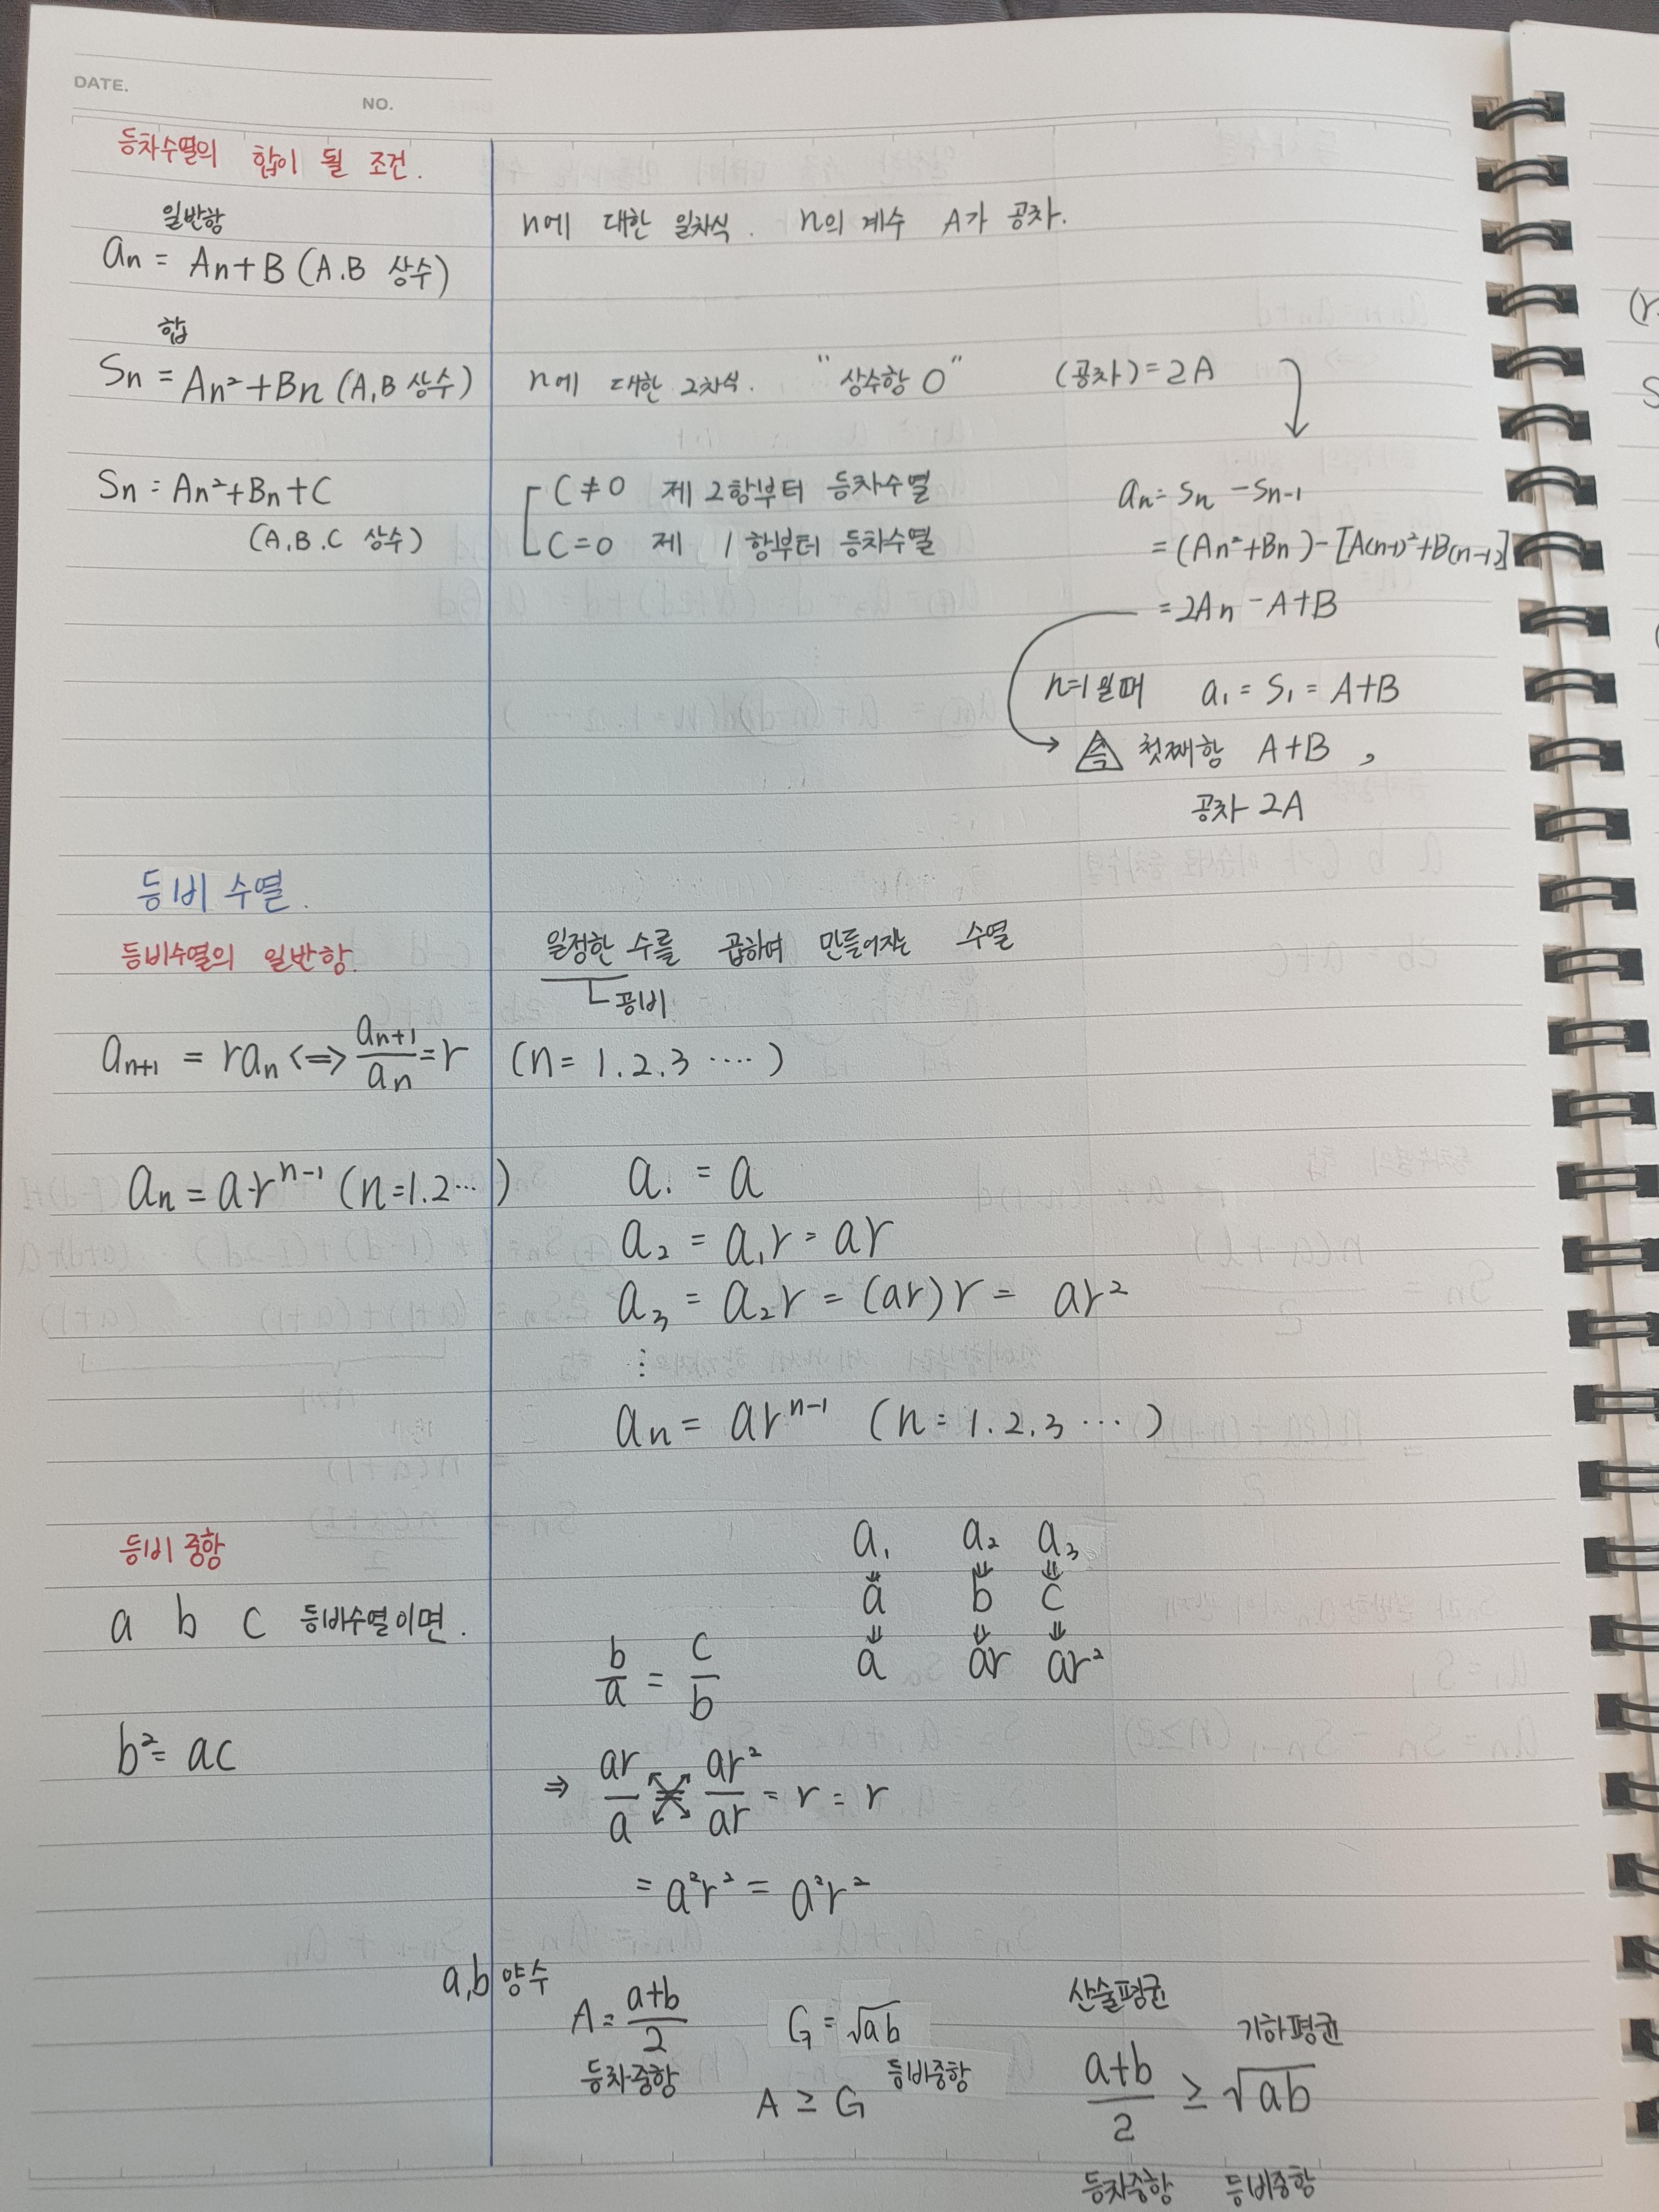 DATE.
NO.
등차수열의 합이 될 조건.
일반항
an = An+B (A.B 상수)
n에 대한 일차식. n의 계수 A가 공차.
합
Sn = An²+Bn (A,B 상수)
n에 대한 2차식. "상수항 0" (공차)=2A
Sn = An²+Bn+C
(A.B.C 상수)
C≠0 제 2항부터 등차수열
C=0 제 1항부터 등차수열
an = Sn - Sn-1
= (An²+Bn) - [A(n-1)²+B(n-1)]
= 2An - A+B
n=1일때 a₁ = S₁ = A+B
즉 첫째항 A+B ,
공차 2A
등비수열.
등비수열의 일반항.
일정한 수를 곱하여 만들어지는 수열
공비
an+1 = ran <=> an+1/an = r (n= 1.2.3 ····)
an = a·rⁿ⁻¹ (n=1.2···)
a₁ = a
a₂ = a₁r = ar
a₃ = a₂r = (ar)r = ar²
⋮
an = arⁿ⁻¹ (n=1.2.3 ···)
등비중항
a b c 등비수열이면.
b² = ac
a₁ a₂ a₃
⇓ ⇓ ⇓
a b c
⇓ ⇓ ⇓
a ar ar²
b/a = c/b
⇒ ar/a = ar²/ar = r = r
= a²r² = a²r²
a,b 양수
A = a+b/2 G = √ab
등차중항 등비중항
A ≥ G
산술평균 기하평균
a+b/2 ≥ √ab
등차중항 등비중항